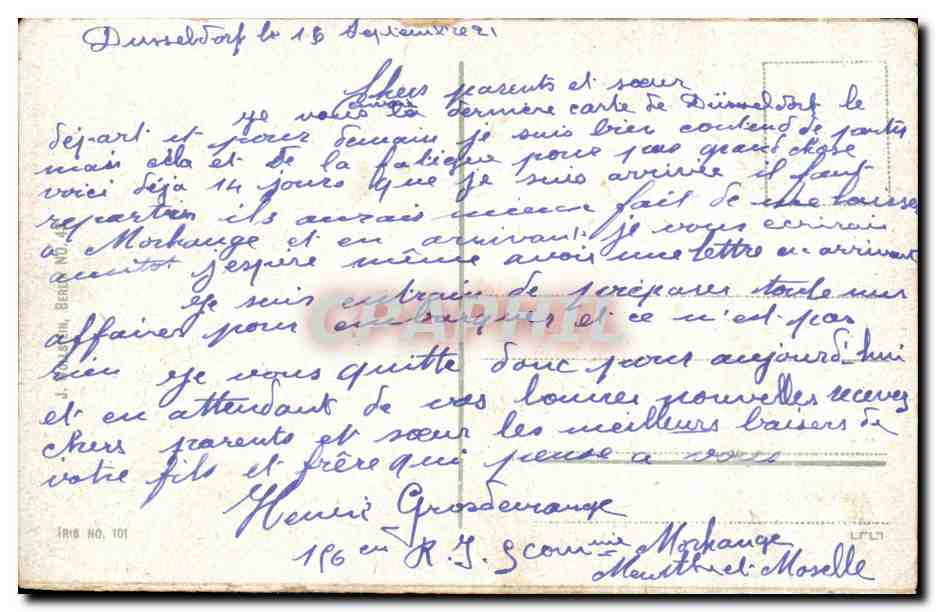 Dusseldorf le 15 Septembre 21
Chers parents et sœur
je vous envoi la dernière carte de Düsseldorf le
départ et pour demain je suis bien contend de partir
mais cela et de la fatigue pour pas grand chose
voici déja 14 jours que je suis arrivée il faut
repartir ils aurais mieux fait de me laisser
a Morhange et en arrivant je vous écrirais
aussitot j'espère même avoir une lettre en arrivant
Je suis entrain de préparer toute mes
affaires pour embarquer et ce n'est pas
rien je vous quitte donc pour aujourd'hui
et en attendant de vos bonnes nouvelles recevez
chers parents et sœur les meilleurs baisers de
votre fils et frère qui pense a vous
Henri Grosdemange
156 em R.I. 9 comnie Morhange
Meurthe et Moselle
J. GOLDSTEIN, BERLIN NO. 43
IRIS NO. 101
CPAPHIL